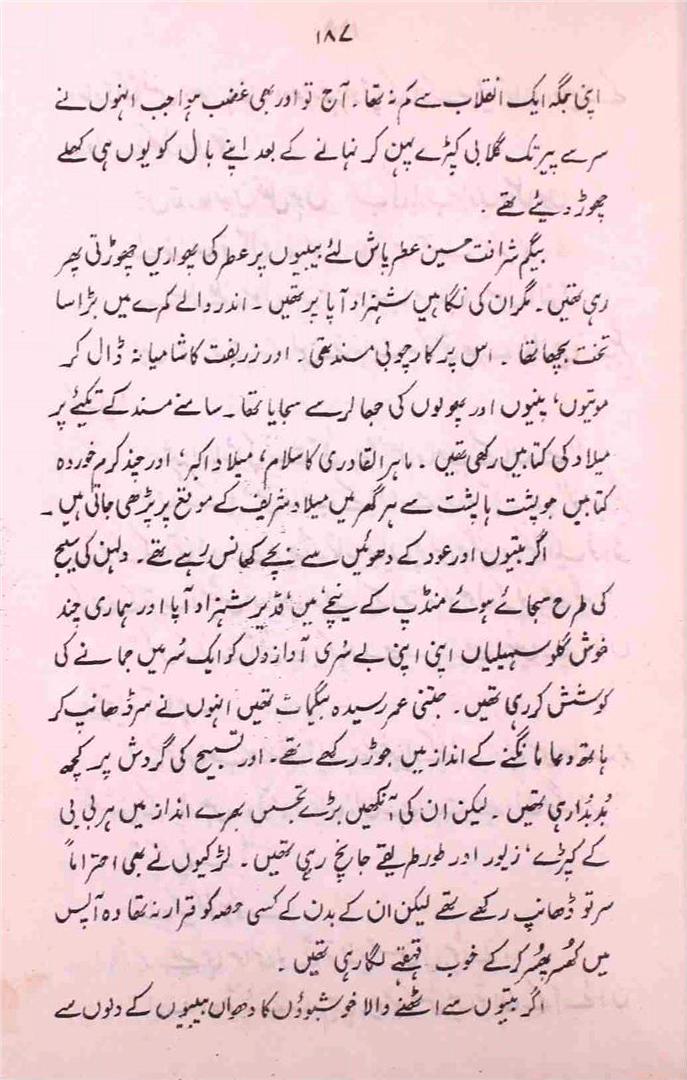 ۱۸۷
اپنی جگہ ایک انقلاب سے کم نہ تھا۔ آج تو اور بھی غضب ہوا جب انہوں نے
سر سے پیر تک گلابی کپڑے پہن کر نہانے کے بعد اپنے بال کو یوں ہی کھلے
چھوڑ دیئے تھے۔
بیگم شرافت حسین عطر پاش لئے بیبیوں پر عطر کی پھواریں چھوڑتی پھر
رہی تھیں۔ مگر ان کی نگاہیں شہزاد آپا پر تھیں۔ اندر والے کمرے میں بڑا سا
تخت بچھا تھا۔ اس پر کار چوبی مسند تھی۔ اور زربفت کا شامیانہ ڈال کر
موتیوں، پنیوں اور پھولوں کی جھالر سے سجایا تھا۔ سامنے مسند کے تکیئے پر
میلاد کی کتابیں رکھی تھیں۔ ماہر القادری کا سلام، میلاد اکبر، اور چند کرم خوردہ
کتابیں جو پشت ہا پشت سے ہر گھر میں میلاد شریف کے موقع پر پڑھی جاتی ہیں۔
اگر بتیوں اور عود کے دھوئیں سے بچے کھانس رہے تھے۔ دلہن کی سیج
کی طرح سجائے ہوئے منڈپ کے نیچے، میں، قدیر، شہزاد آپا اور ہماری چند
خوش گلو سہیلیاں اپنی اپنی بے سُری آوازوں کو ایک سُر میں جمانے کی
کوشش کر رہی تھیں۔ جتنی عمر رسیدہ بیگمات تھیں انہوں نے سر ڈھانپ کر
ہاتھ دعا مانگنے کے انداز میں جوڑ رکھے تھے۔ اور تسبیح کی گردش پر کچھ
بُدبُدا رہی تھیں۔ لیکن ان کی آنکھیں بڑے تجسس بھرے انداز میں ہر بی بی
کے کپڑے، زیور اور طور طریقے جانچ رہی تھیں۔ لڑکیوں نے بھی احتراماً
سر تو ڈھانپ رکھے تھے لیکن ان کے بدن کے کسی حصہ کو قرار نہ تھا وہ آپس
میں کُھسر پُھسر کر کے خوب قہقہے لگا رہی تھیں۔
اگر بتیوں سے اٹھنے والا خوشبوؤں کا دھواں بیبیوں کے دلوں سے